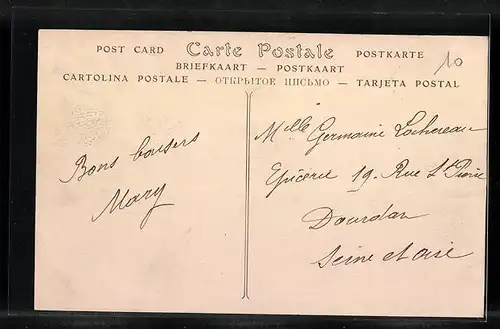 POST CARD Carte Postale POSTKARTE
BRIEFKAART — POSTKAART
CARTOLINA POSTALE — ОТКРЫТОЕ ПИСЬМО — TARJETA POSTAL
10
Bons baisers
Mary
Mlle Germaine Lochereau
Epicerie 19. Rue St Pierre
Dourdan
Seine et oise